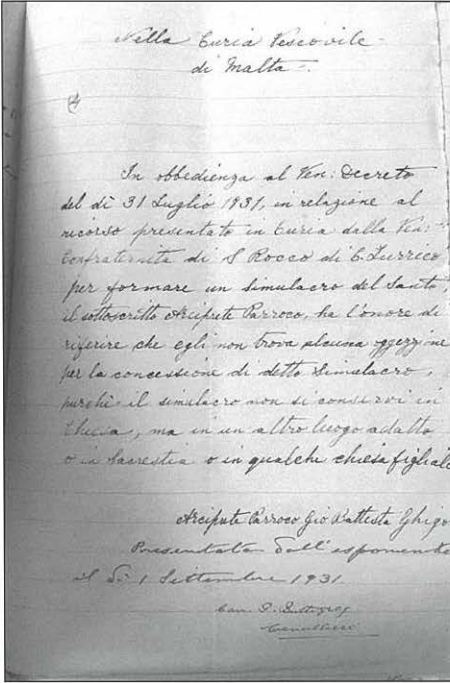 Nella Curia Vescovile
di Malta =
In obbedienza al Ven: Decreto
del dì 31 Luglio 1931, in relazione al
ricorso presentato in Curia dalla Ven:
Confraternita di S Rocco di C. Zurrico
per formare un simulacro del Santo,
il sottoscritto Arciprete Parroco, ha l'onore di
riferire che egli non trova alcuna oggezzione
per la concessione di detto Simulacro,
purchè il simulacro non si conservi in
Chiesa, ma in un altro luogo adatto
o in Sacrestia o in qualche chiesa figliale
Arciprete Parroco Gio Battista Ghigo
Presentata dall'esponente
il dì 1 Settembre 1931
Can.
Cancelliere